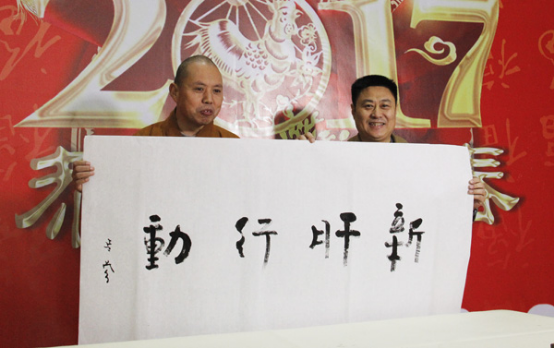 2017
新肝行動